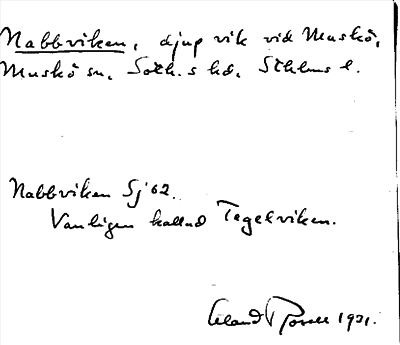 Nabbviken, djup vik vid Muskö,
Muskö sn. Soth.s hd. Sthlms l.
Nabbviken Sj 62.
Vanligen kallad Tegelviken.
Erland Rosell 1931.